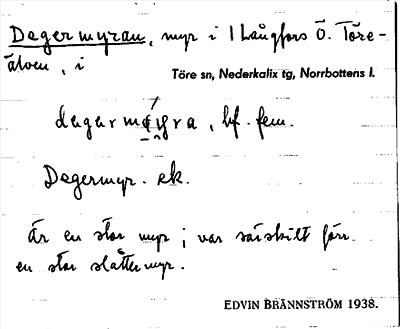 Degermyran, myr i 1 Långfors Ö. Töre-
älven, i
Töre sn, Nederkalix tg, Norrbottens l.
bf. fem.
Degermyr. ek.
Är en stor myr; var särskilt förr
en stor slåttermyr.
EDVIN BRÄNNSTRÖM 1938.